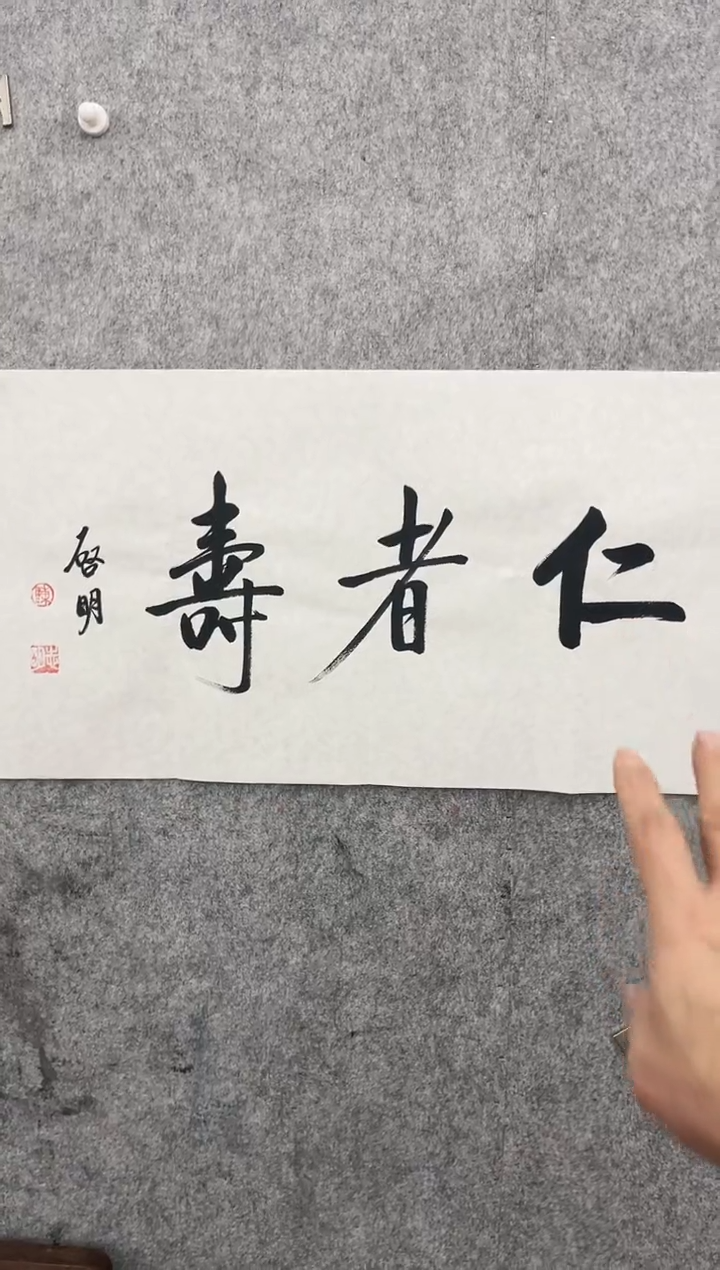 仁者壽
啓明